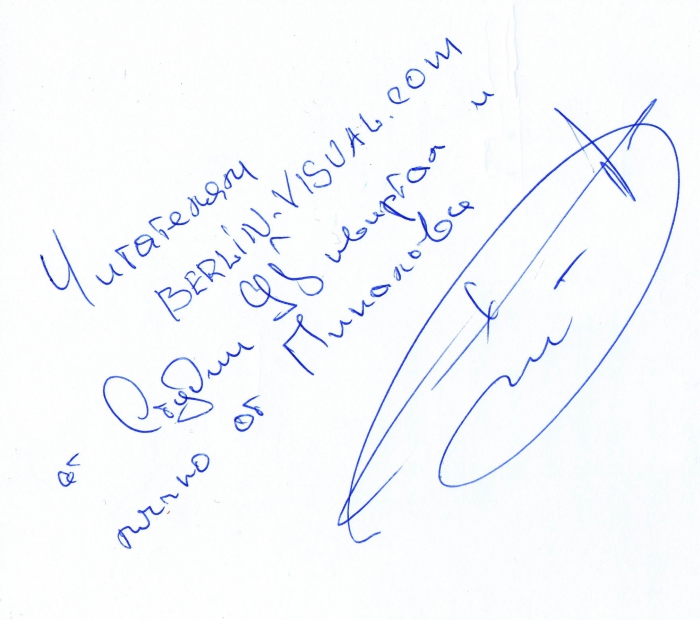 Читателям
BERLIN-VISUAL.COM
от Студии 95 квартал и
лично от Пикалова